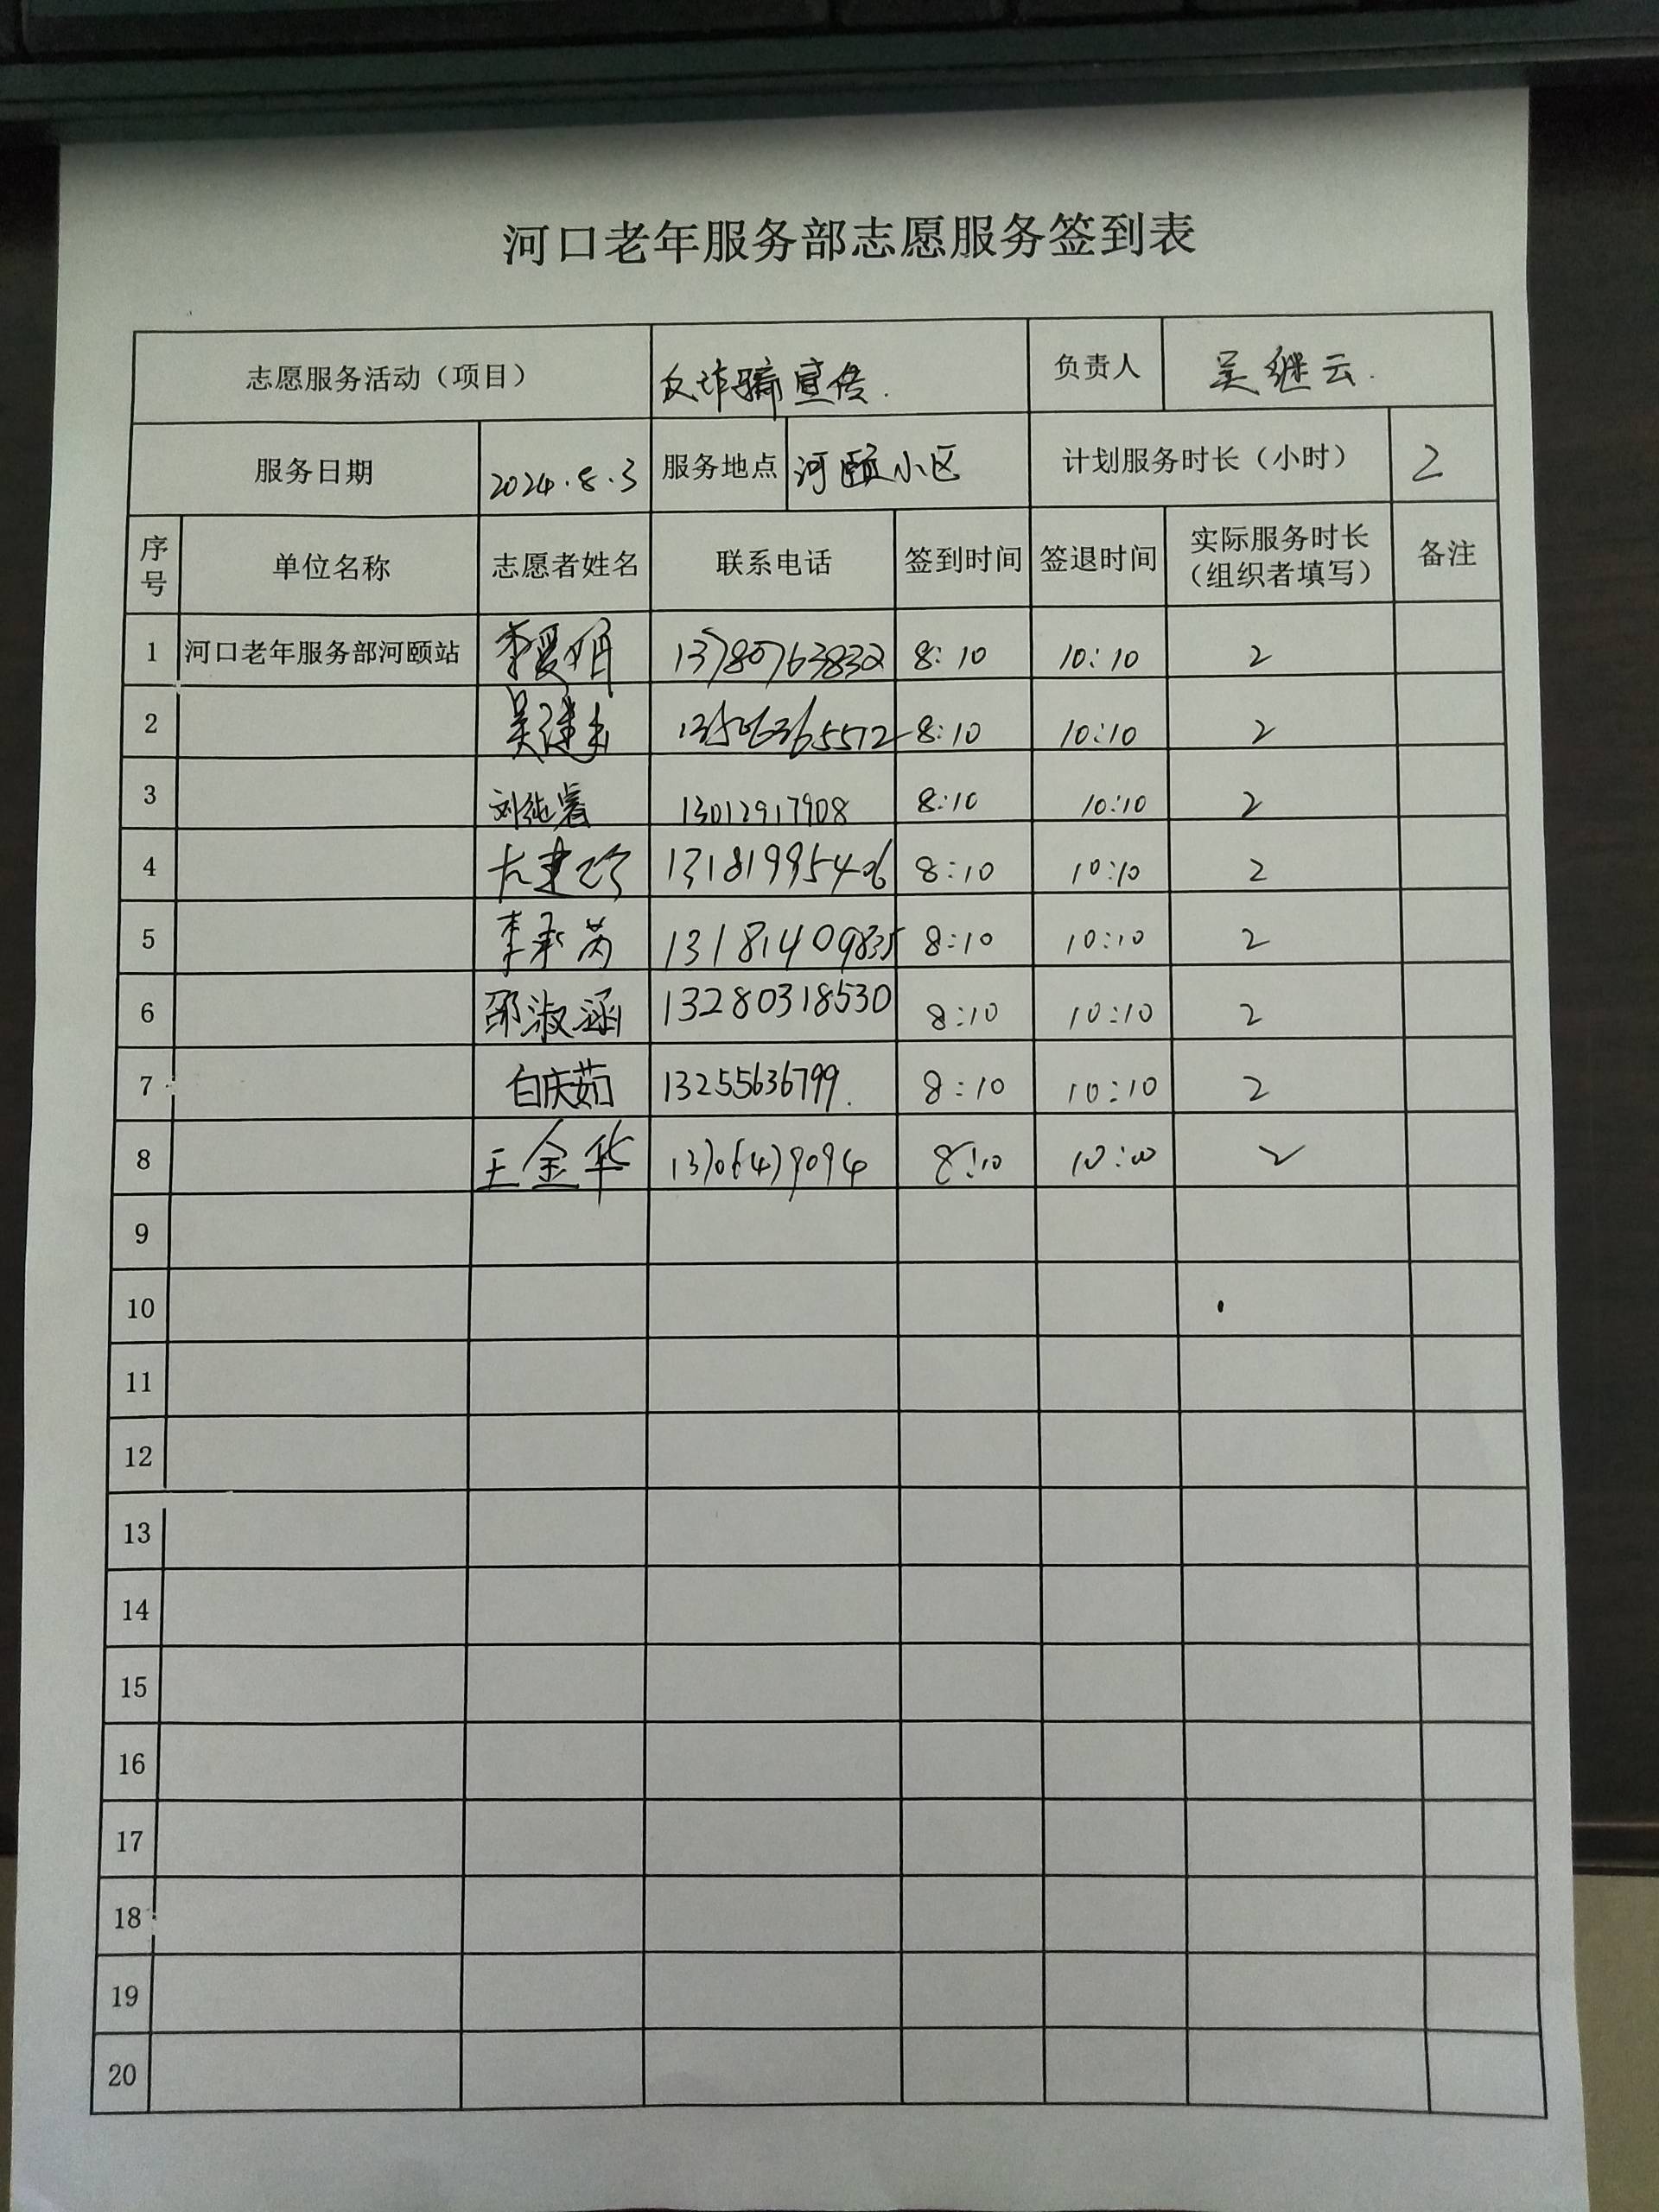 河口老年服务部志愿服务签到表
志愿服务活动（项目） 反诈骗宣传. 负责人 吴继云.
服务日期 2024.8.3 服务地点 河颐小区 计划服务时长（小时） 2
序号 单位名称 志愿者姓名 联系电话 签到时间 签退时间 实际服务时长（组织者填写） 备注
1 河口老年服务部河颐站 李爱娟 13780763832 8:10 10:10 2
2 13506365572 8:10 10:10 2
3 13012917908 8:10 10:10 2
4 13181995406 8:10 10:10 2
5 13181409835 8:10 10:10 2
6 邵淑涵 13280318530 8:10 10:10 2
7 白庆茹 13255636799. 8:10 10:10 2
8 王金华 13706479094 8:10 10:10 2
9
10
11
12
13
14
15
16
17
18
19
20